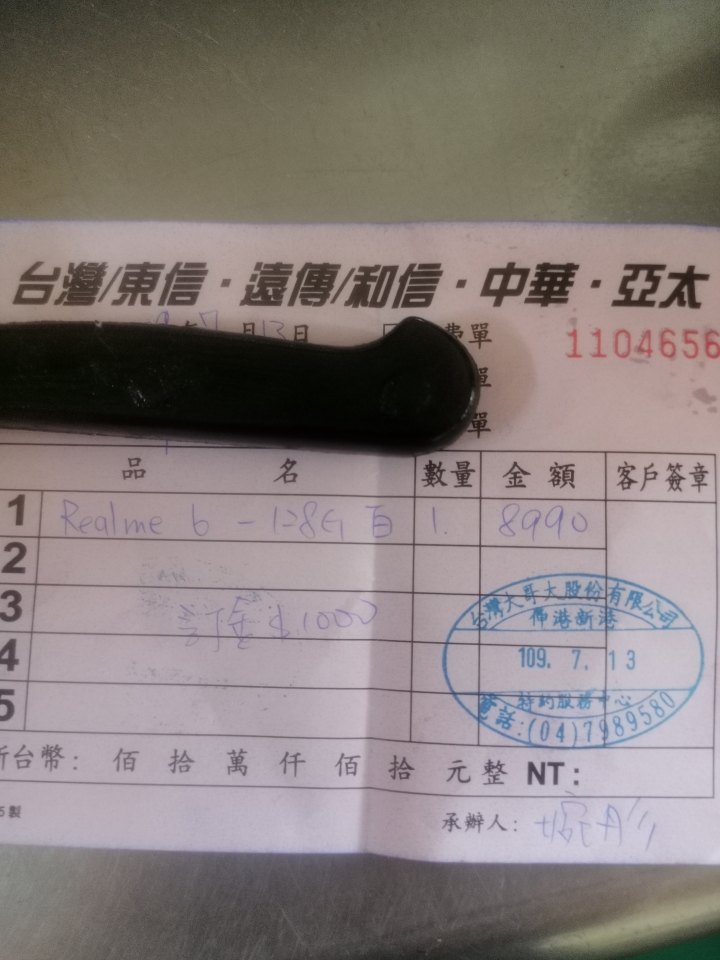 台灣/東信·遠傳/和信·中華·亞太
7月13日 費單
1104656
單
單
品名 數量 金額 客戶簽章
1 Realme 6 - 128G 白 1. 8990
2
3 訂金 $1000
4
5
台灣大哥大股份有限公司
伸港新港
109. 7. 13
特約服務中心
電話:(04)7989580
新台幣: 佰 拾 萬 仟 佰 拾 元整 NT:
製
承辦人: